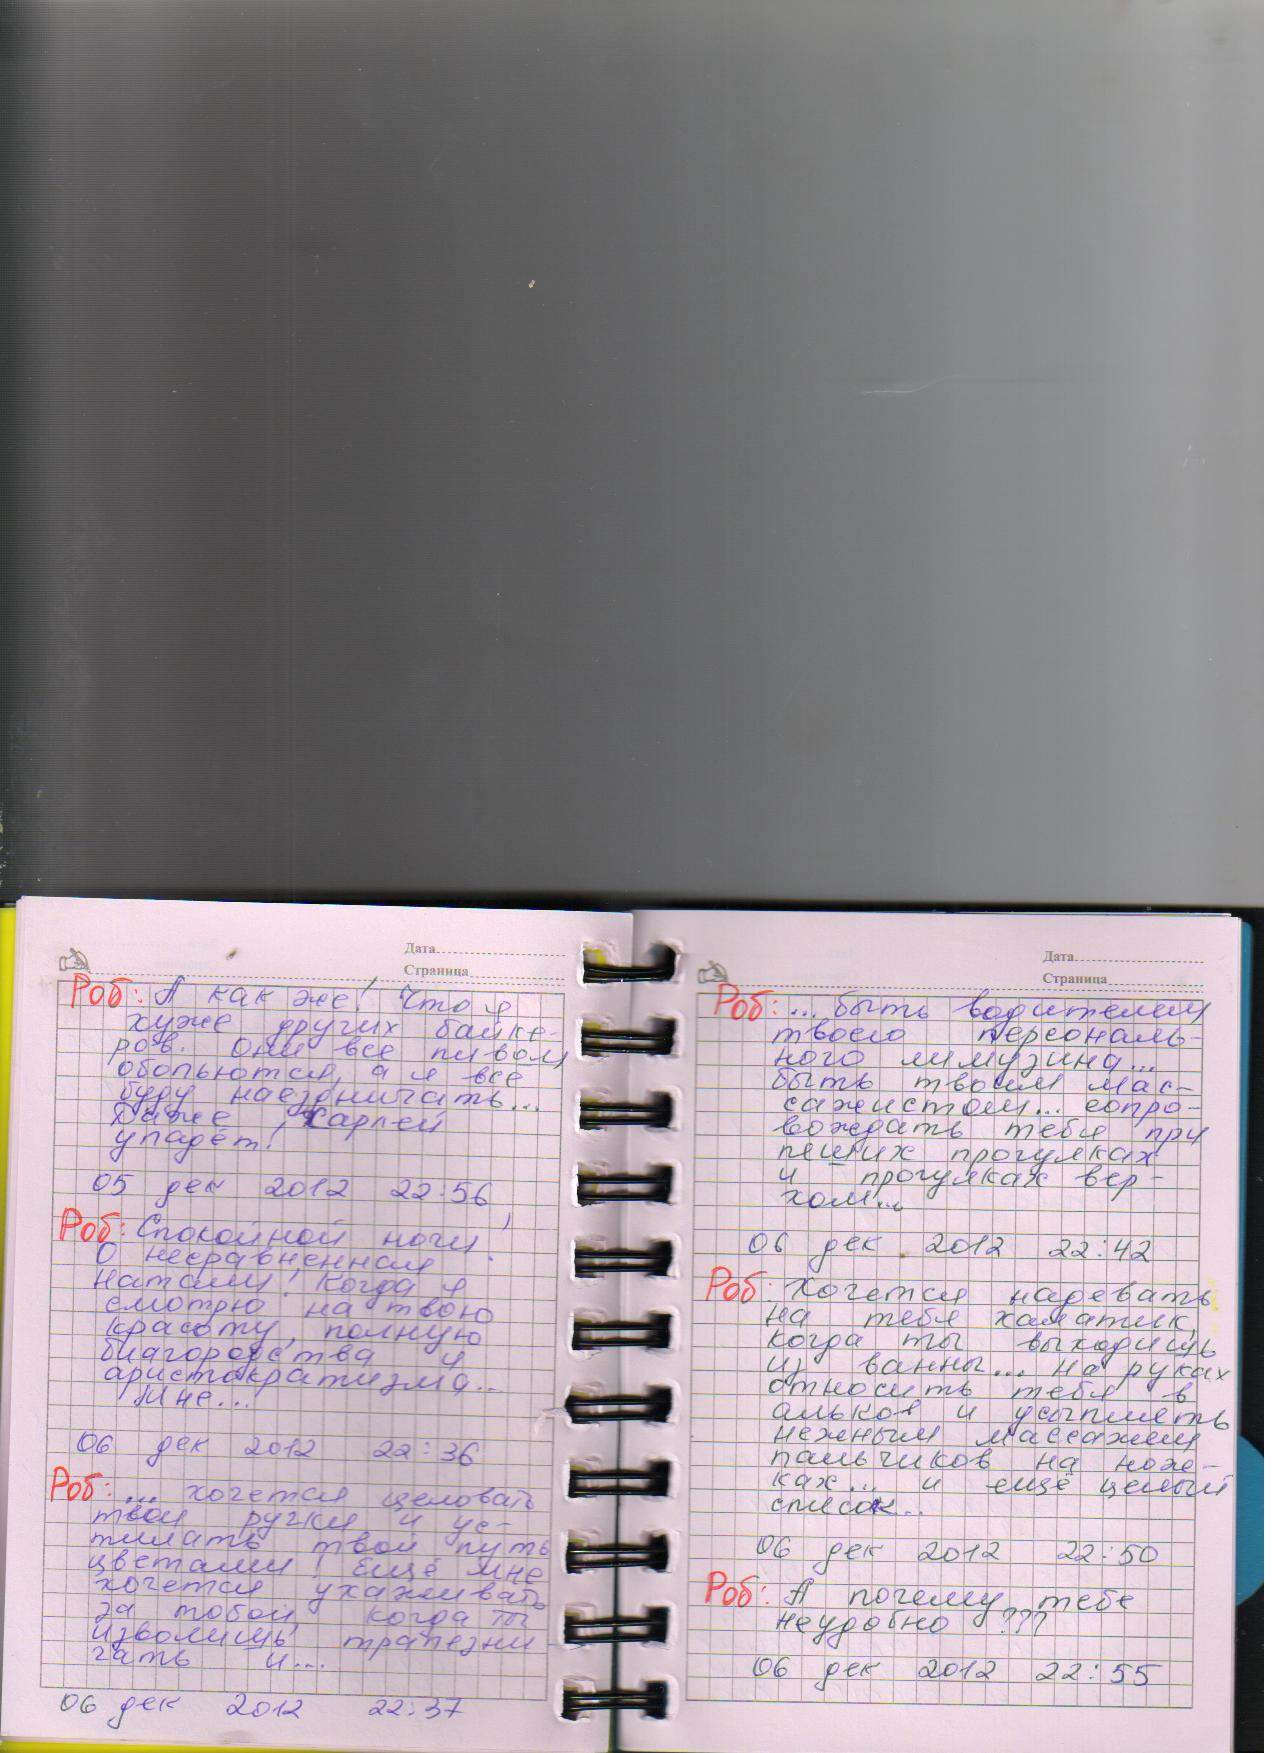 Дата
Страница
Роб: А как же! Что я
хуже других байке-
ров. Они все пивом
обопьются, а я все
буду наездничать...
Даже Харлей
упадёт!
05 дек 2012 22:56
Роб: Спокойной ночи,
О несравненная
Натали! Когда я
смотрю на твою
красоту, полную
благородства и
аристократизма...
Мне...
06 дек 2012 22:36
Роб: ... хочется целовать
твои ручки и ус-
тилать твой путь
цветами! Ещё мне
хочется ухаживать
за тобой, когда ты
изволишь трапезни
чать и...
06 дек 2012 22:37
Дата
Страница
Роб: ... быть водителем
твоего персональ-
ного лимузина...
быть твоим мас-
сажистом... сопро-
вождать тебя при
пеших прогулках
и прогулках вер-
хом...
06 дек 2012 22:42
Роб: Хочется надевать
на тебя халатик,
когда ты выходишь
из ванны... На руках
относить тебя в
альков и усыплять
нежным массажем
пальчиков на нож-
ках... и ещё целый
список...
06 дек 2012 22:50
Роб: А почему тебе
неудобно ???
06 дек 2012 22:55